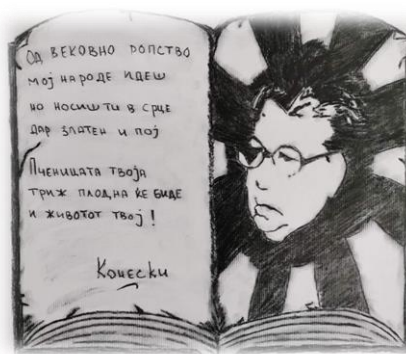 Од вековно ропство
мој народе идеш
но носиш ти в срце
дар златен и пој
Пченицата твоја
триж плодна ќе биде
и животот твој!
Конески